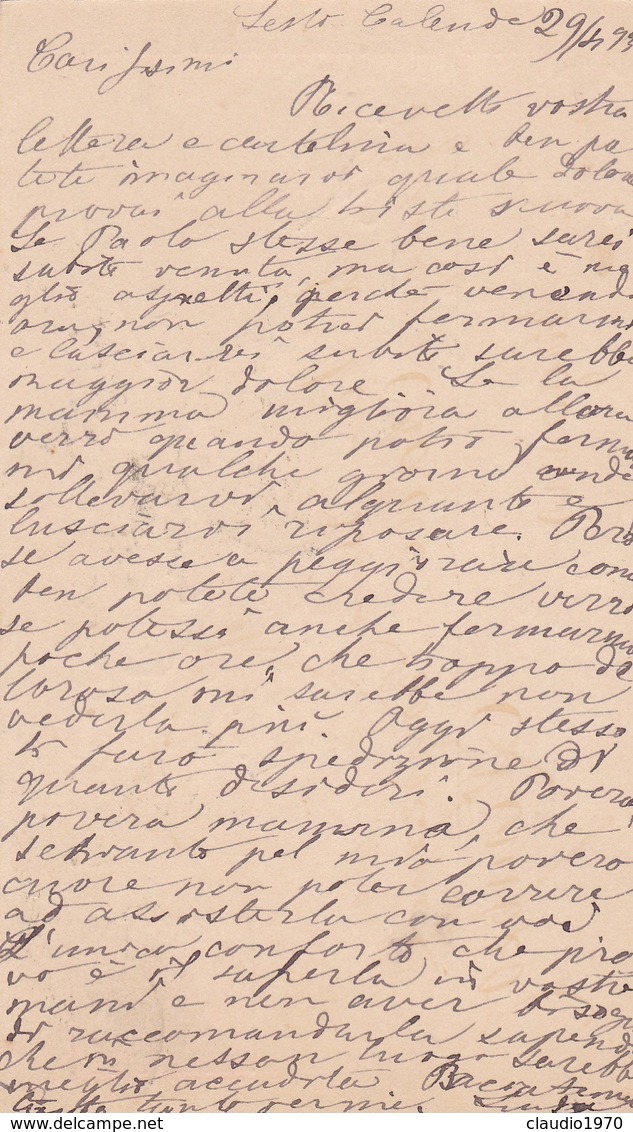 Sesto Calende 29/4 93
Carissimi
Ricevetti vostra
lettera e cartolina e ben po
tete imaginarvi quale dolore
provai alla triste nuova
Se Paolo stesse bene sarei
subito venuta, ma così è me
glio aspetti, perchè venendo
ora, non potrei fermarmi
e lasciarvi subito sarebbe
maggior dolore. Se la
mamma migliora allora
verrò quando potrò ferma
mi qualche giorno onde
sollevarvi alquanto e
lasciarvi riposare. Però
se avesse a peggiorare come
ben potete credere verrò
se potessi anche fermarmi
poche ore, che troppo do
loroso mi sarebbe non
vederla più. Oggi stesso
ti farò spedizione di
quanto desideri. Povera,
povera mamma, che
schianto pel mio povero
cuore non poter correre
ad assisterla con voi
L'unico conforto che pro
vo è il saperla in vostre
mani e non aver bisogno
di raccomandarla sapendo
che in nessun luogo sarebbe
meglio accudita. Bacia
tanto per me. Linda
claudio1970